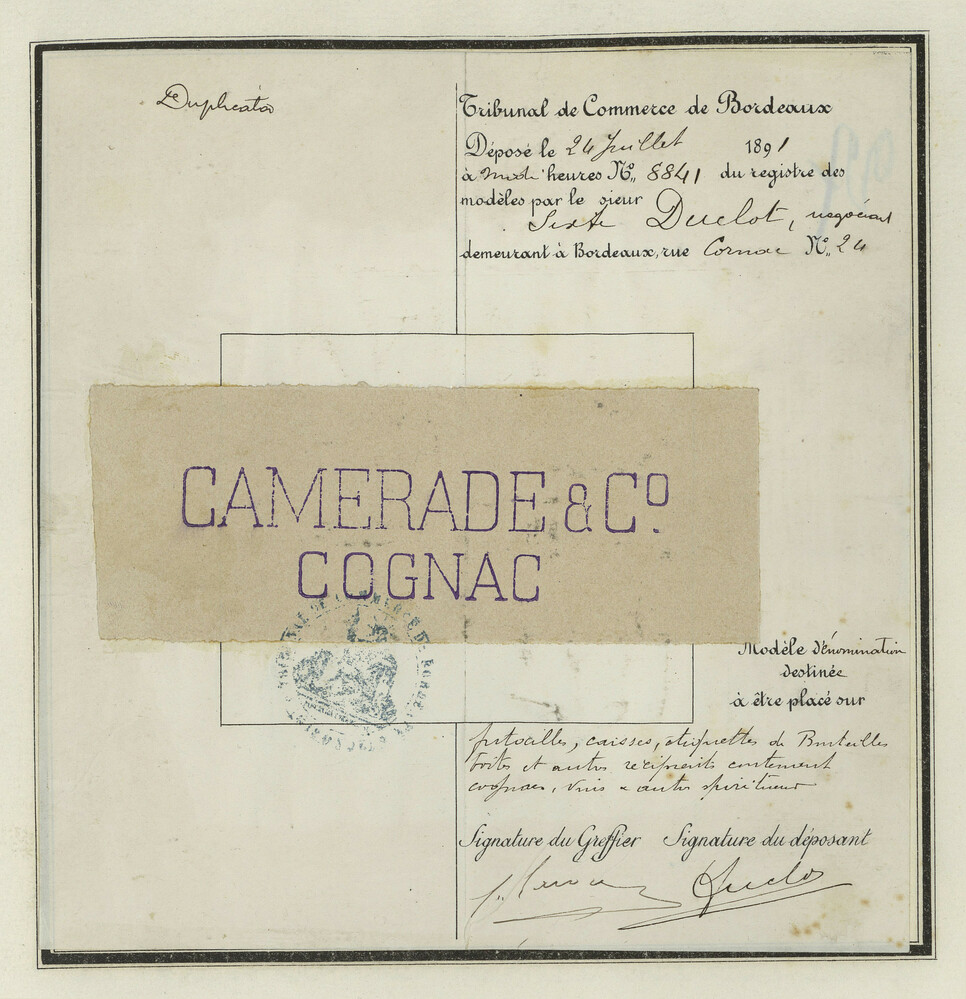 Duplicata
Tribunal de Commerce de Bordeaux
Déposé le 24 Juillet 1891
à heures Nº 8841 du registre des
modèles par le sieur
Sixte Duclot, négociant
demeurant à Bordeaux, rue Cornac Nº 24
CAMERADE & Cº.
COGNAC
Modèle dénomination
destinée
à être placé sur
futailles, caisses, étiquettes de Bouteilles
boites et autres récipients contenant
cognacs, vins & autres spiritueux
Signature du Greffier Signature du déposant
Duclot